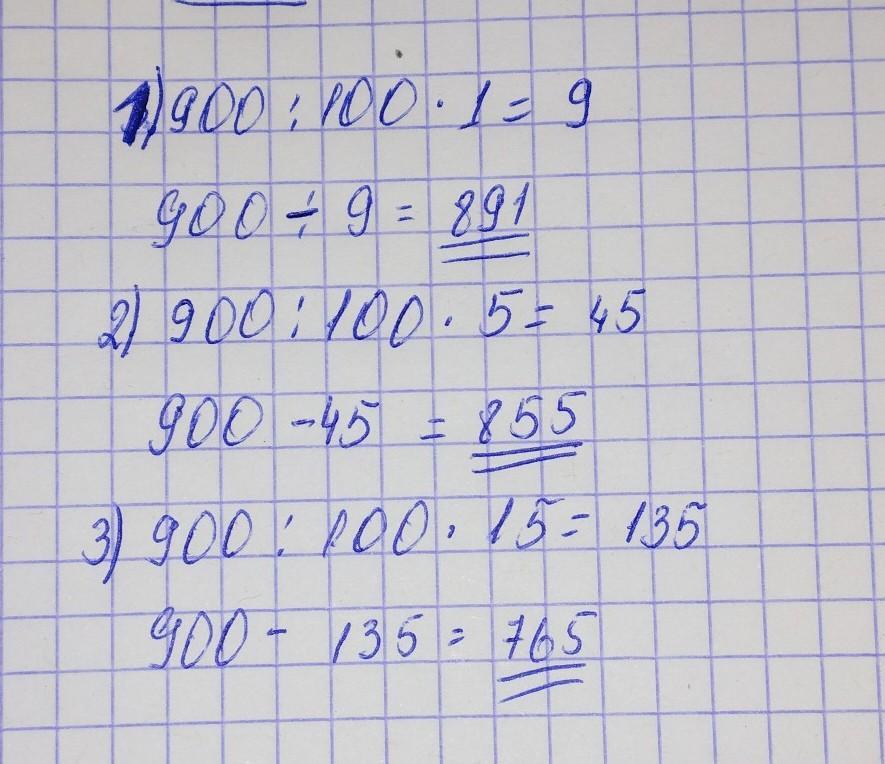 1) 900 : 100 · 1 = 9
900 ÷ 9 = 891
2) 900 : 100 · 5 = 45
900 - 45 = 855
3) 900 : 100 · 15 = 135
900 - 135 = 765